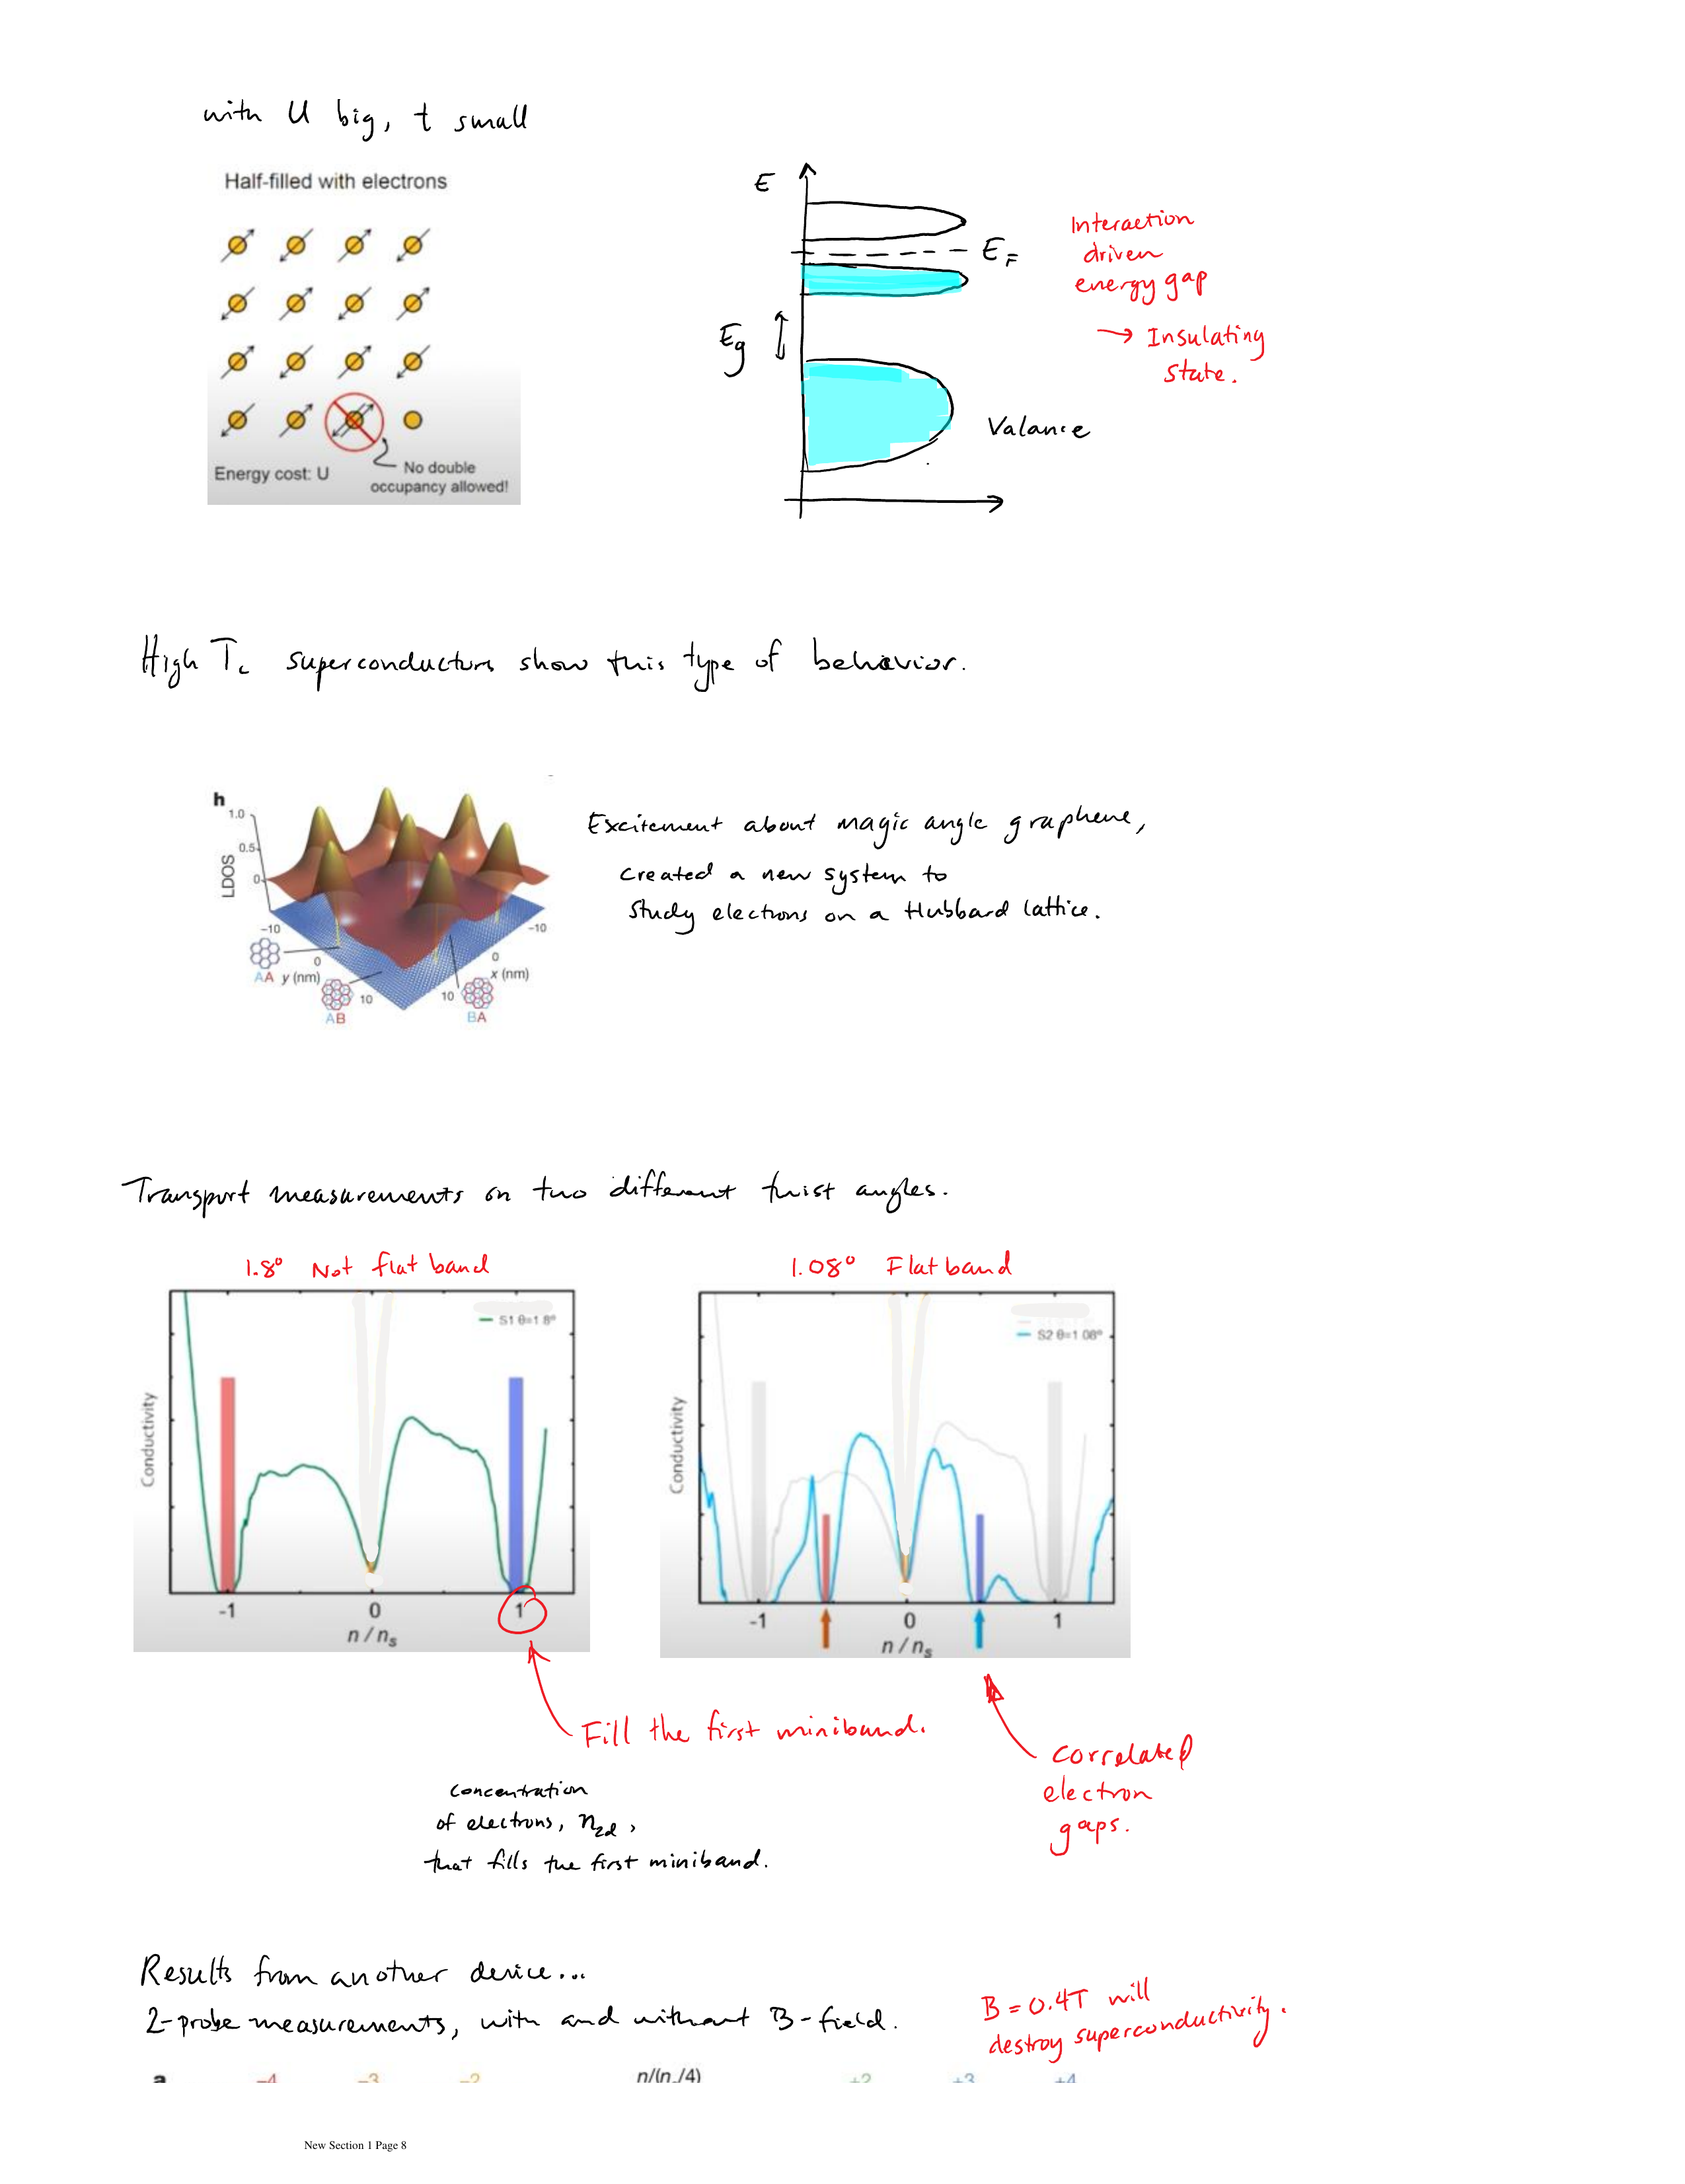 with U big, t small
Half-filled with electrons
Energy cost: U
No double
occupancy allowed!
E
E_F
Eg
Valance
Interaction
driven
energy gap
→ Insulating
state.
High Tc superconductors show this type of behavior.
h
1.0
0.5
0
LDOS
-10
0
10
y (nm)
-10
0
10
x (nm)
AA
AB
BA
Excitement about magic angle graphene,
created a new system to
study electrons on a Hubbard lattice.
Transport measurements on two different twist angles.
1.8° Not flat band
S1 θ=1.8°
Conductivity
-1 0 1
n / ns
1.08° Flat band
S2 θ=1.08°
Conductivity
-1 0 1
n / ns
Fill the first miniband.
Correlated
electron
gaps.
Concentration
of electrons, n2d,
that fills the first miniband.
Results from another device...
2-probe measurements, with and without B-field.
B = 0.4T will
destroy superconductivity.
a -4 -3 -2 n/(ns/4) +2 +3 +4
New Section 1 Page 8